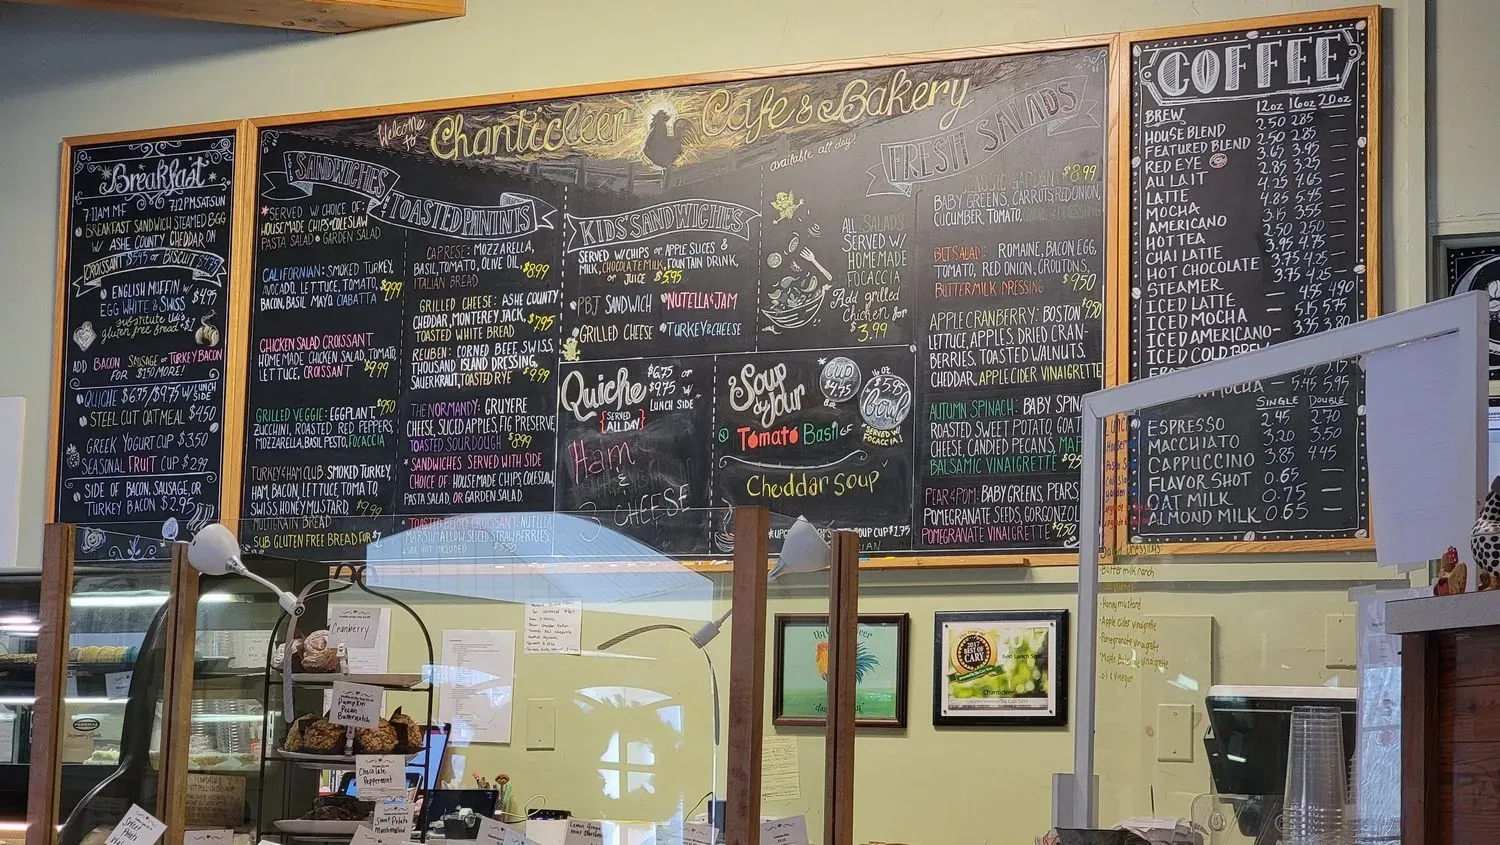 Breakfast
7-11AM MF 7-12PM SAT SUN
BREAKFAST SANDWICH STEAMED EGG
W/ ASHE COUNTY CHEDDAR ON
CROISSANT $5.95 or BISCUIT
ENGLISH MUFFIN W/ $4.95
EGG WHITE & SWISS
substitute
gluten free bread +$1
ADD BACON SAUSAGE or TURKEY BACON
FOR $1.50 MORE!
QUICHE $6.75/$9.75 W/ LUNCH SIDE
STEEL CUT OATMEAL $4.50
GREEK YOGURT CUP $3.50
SEASONAL FRUIT CUP $2.99
SIDE OF BACON, SAUSAGE, OR
TURKEY BACON $2.95
Welcome to Chanticleer Cafe & Bakery
SANDWICHES
*SERVED W/ CHOICE OF:
HOUSEMADE CHIPS • COLESLAW
PASTA SALAD • GARDEN SALAD
CALIFORNIAN: SMOKED TURKEY,
AVOCADO, LETTUCE, TOMATO, $9.99
BACON, BASIL MAYO, CIABATTA
CHICKEN SALAD CROISSANT
HOMEMADE CHICKEN SALAD, TOMATO,
LETTUCE, CROISSANT $9.99
GRILLED VEGGIE: EGGPLANT, $9.50
ZUCCHINI, ROASTED RED PEPPERS,
MOZZARELLA, BASIL PESTO, FOCACCIA
TURKEY & HAM CLUB: SMOKED TURKEY,
HAM, BACON, LETTUCE, TOMATO,
SWISS, HONEY MUSTARD $9.99
MULTIGRAIN BREAD
SUB GLUTEN FREE BREAD FOR
TOASTED PANINIS
CAPRESE: MOZZARELLA,
BASIL, TOMATO, OLIVE OIL, $8.99
ITALIAN BREAD
GRILLED CHEESE: ASHE COUNTY
CHEDDAR, MONTEREY JACK, $7.95
TOASTED WHITE BREAD
REUBEN: CORNED BEEF, SWISS,
THOUSAND ISLAND DRESSING,
SAUERKRAUT, TOASTED RYE $9.99
THE NORMANDY: GRUYERE
CHEESE, SLICED APPLES, FIG PRESERVE,
TOASTED SOURDOUGH $8.99
*SANDWICHES SERVED WITH SIDE
CHOICE OF: HOUSEMADE CHIPS, COLESLAW,
PASTA SALAD OR GARDEN SALAD.
*TOASTED BERRY CROISSANT: NUTELLA,
MARSHMALLOW, SLICED STRAWBERRIES,
*SIDE NOT INCLUDED $5.50
KIDS' SANDWICHES
SERVED W/ CHIPS or APPLE SLICES &
MILK, CHOCOLATE MILK, FOUNTAIN DRINK,
or JUICE $5.95
PBJ SANDWICH NUTELLA & JAM
GRILLED CHEESE TURKEY & CHEESE
Quiche $6.75 or
$9.75 W/
LUNCH SIDE
{SERVED
ALL DAY}
Ham
&
3 CHEESE
Soup du Jour
CUP $4.95 8 oz
16 OZ $5.95 Bowl
*SERVED W/ FOCACCIA!
Tomato Basil GF
Cheddar Soup
SOUP CUP $1.75
available all day!
FRESH SALADS
ALL SALADS
SERVED W/
HOMEMADE
FOCACCIA
Add grilled
chicken for
3.99
$8.99
BABY GREENS, CARROTS, RED ONION,
CUCUMBER, TOMATO,
BLT SALAD: ROMAINE, BACON, EGG,
TOMATO, RED ONION, CROUTONS,
BUTTERMILK DRESSING $9.50
APPLE CRANBERRY: BOSTON $9.50
LETTUCE, APPLES, DRIED CRAN-
BERRIES, TOASTED WALNUTS,
CHEDDAR, APPLE CIDER VINAIGRETTE
AUTUMN SPINACH: BABY SPIN
ROASTED SWEET POTATO, GOAT
CHEESE, CANDIED PECANS, MAP
BALSAMIC VINAIGRETTE
PEAR & POM: BABY GREENS, PEARS,
POMEGRANATE SEEDS, GORGONZOL
POMEGRANATE VINAIGRETTE $9.50
COFFEE
12oz 16oz 20oz
BREW 2.50 2.85 —
HOUSE BLEND 2.50 2.85 —
FEATURED BLEND 3.65 3.95 —
RED EYE 2.85 3.25 —
AU LAIT 4.25 4.65 —
LATTE
MOCHA
AMERICANO
HOT TEA
CHAI LATTE
HOT CHOCOLATE
STEAMER
ICED LATTE
ICED MOCHA
ICED AMERICANO
ICED COLD BREW
MOCHA
SINGLE DOUBLE
ESPRESSO 2.45 2.70
MACCHIATO 3.20 3.50
CAPPUCCINO 3.85 4.45
FLAVOR SHOT 0.65 —
OAT MILK 0.75 —
ALMOND MILK 0.65 —
Buttermilk ranch
Honey mustard
Apple Cider vinaigrette
Pomegranate vinaigrette
Maple Balsamic Vinaigrette
oil & Vinegar
BEST OF CARY
2017
Best Lunch Spot
Chanticleer
Cranberry
Pumpkin
Pecan
Butterscotch
Chocolate
Peppermint
Sweet Potato
Marshmallow
Sweet
Potato